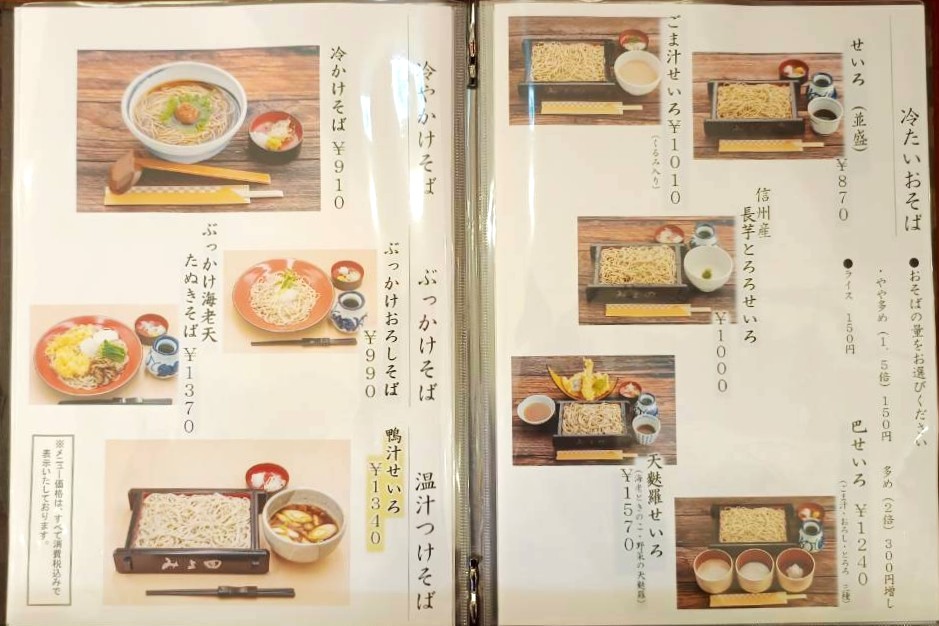 冷たいおそば
●おそばの量をお選びください
・やや多め(1.5倍)150円 多め(2倍)300円増し
●ライス 150円
せいろ(並盛)
¥870
ごま汁せいろ¥1010
(くるみ入り)
信州産
長芋とろろせいろ
¥1000
巴せいろ ¥1240
(ごま汁・おろし・とろろ 三種)
天麩羅せいろ
(海老ときのこ・野菜の天麩羅)
¥1570
冷やかけそば
冷かけそば ¥910
ぶっかけそば
ぶっかけおろしそば
¥990
ぶっかけ海老天
たぬきそば ¥1370
温汁つけそば
鴨汁せいろ
¥1340
みよ田
※メニュー価格は、すべて消費税込みで
表示いたしております。